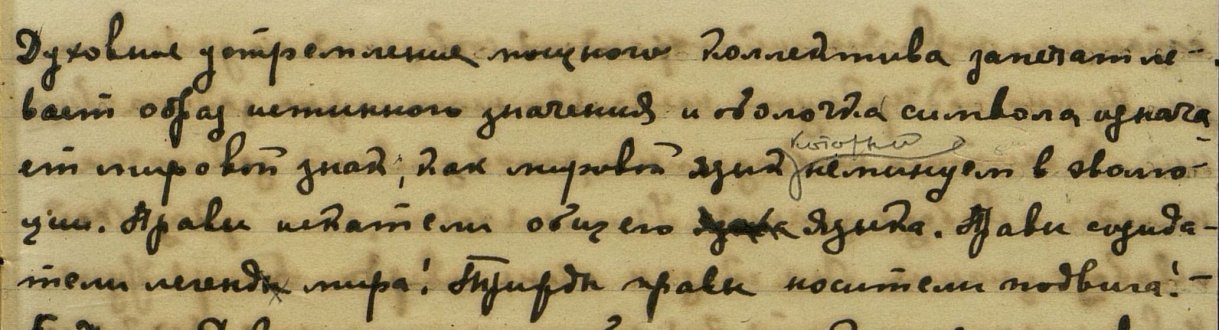 Духовное устремление мощного коллектива запечатле-
вает образ истинного значения и оболочка символа означа
ет мировой знак, как мировой язык который неминуем в эволю-
ции. Правы искатели общего языка. Правы созида-
тели легенды мира! Трижды правы носители подвига!-